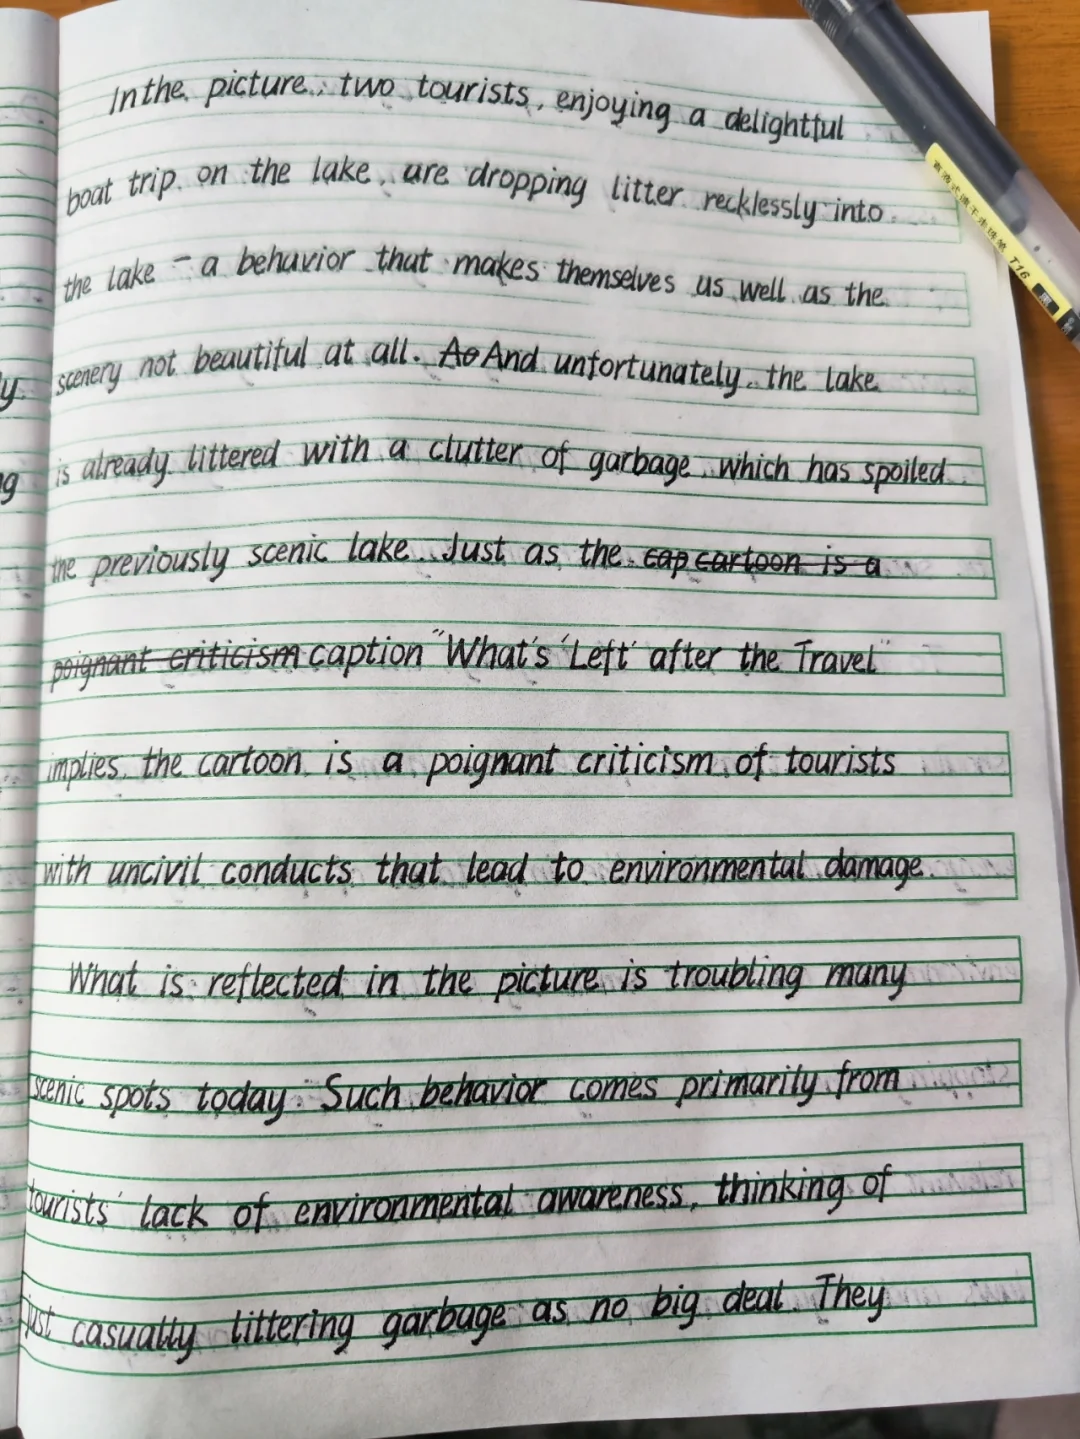 In the picture, two tourists, enjoying a delightful
boat trip on the lake, are dropping litter recklessly into
the lake - a behavior that makes themselves us well as the
scenery not beautiful at all. Ao And unfortunately, the lake
is already littered with a clutter of garbage, which has spoiled
the previously scenic lake. Just as the cap cartoon is a
poignant criticism caption "What's 'Left' after the Travel"
implies, the cartoon is a poignant criticism of tourists
with uncivil conducts that lead to environmental damage.
What is reflected in the picture is troubling many
scenic spots today. Such behavior comes primarily from
tourists' lack of environmental awareness, thinking of
just casually littering garbage as no big deal. They
y.
g
直液式速干走珠笔 T16 黑